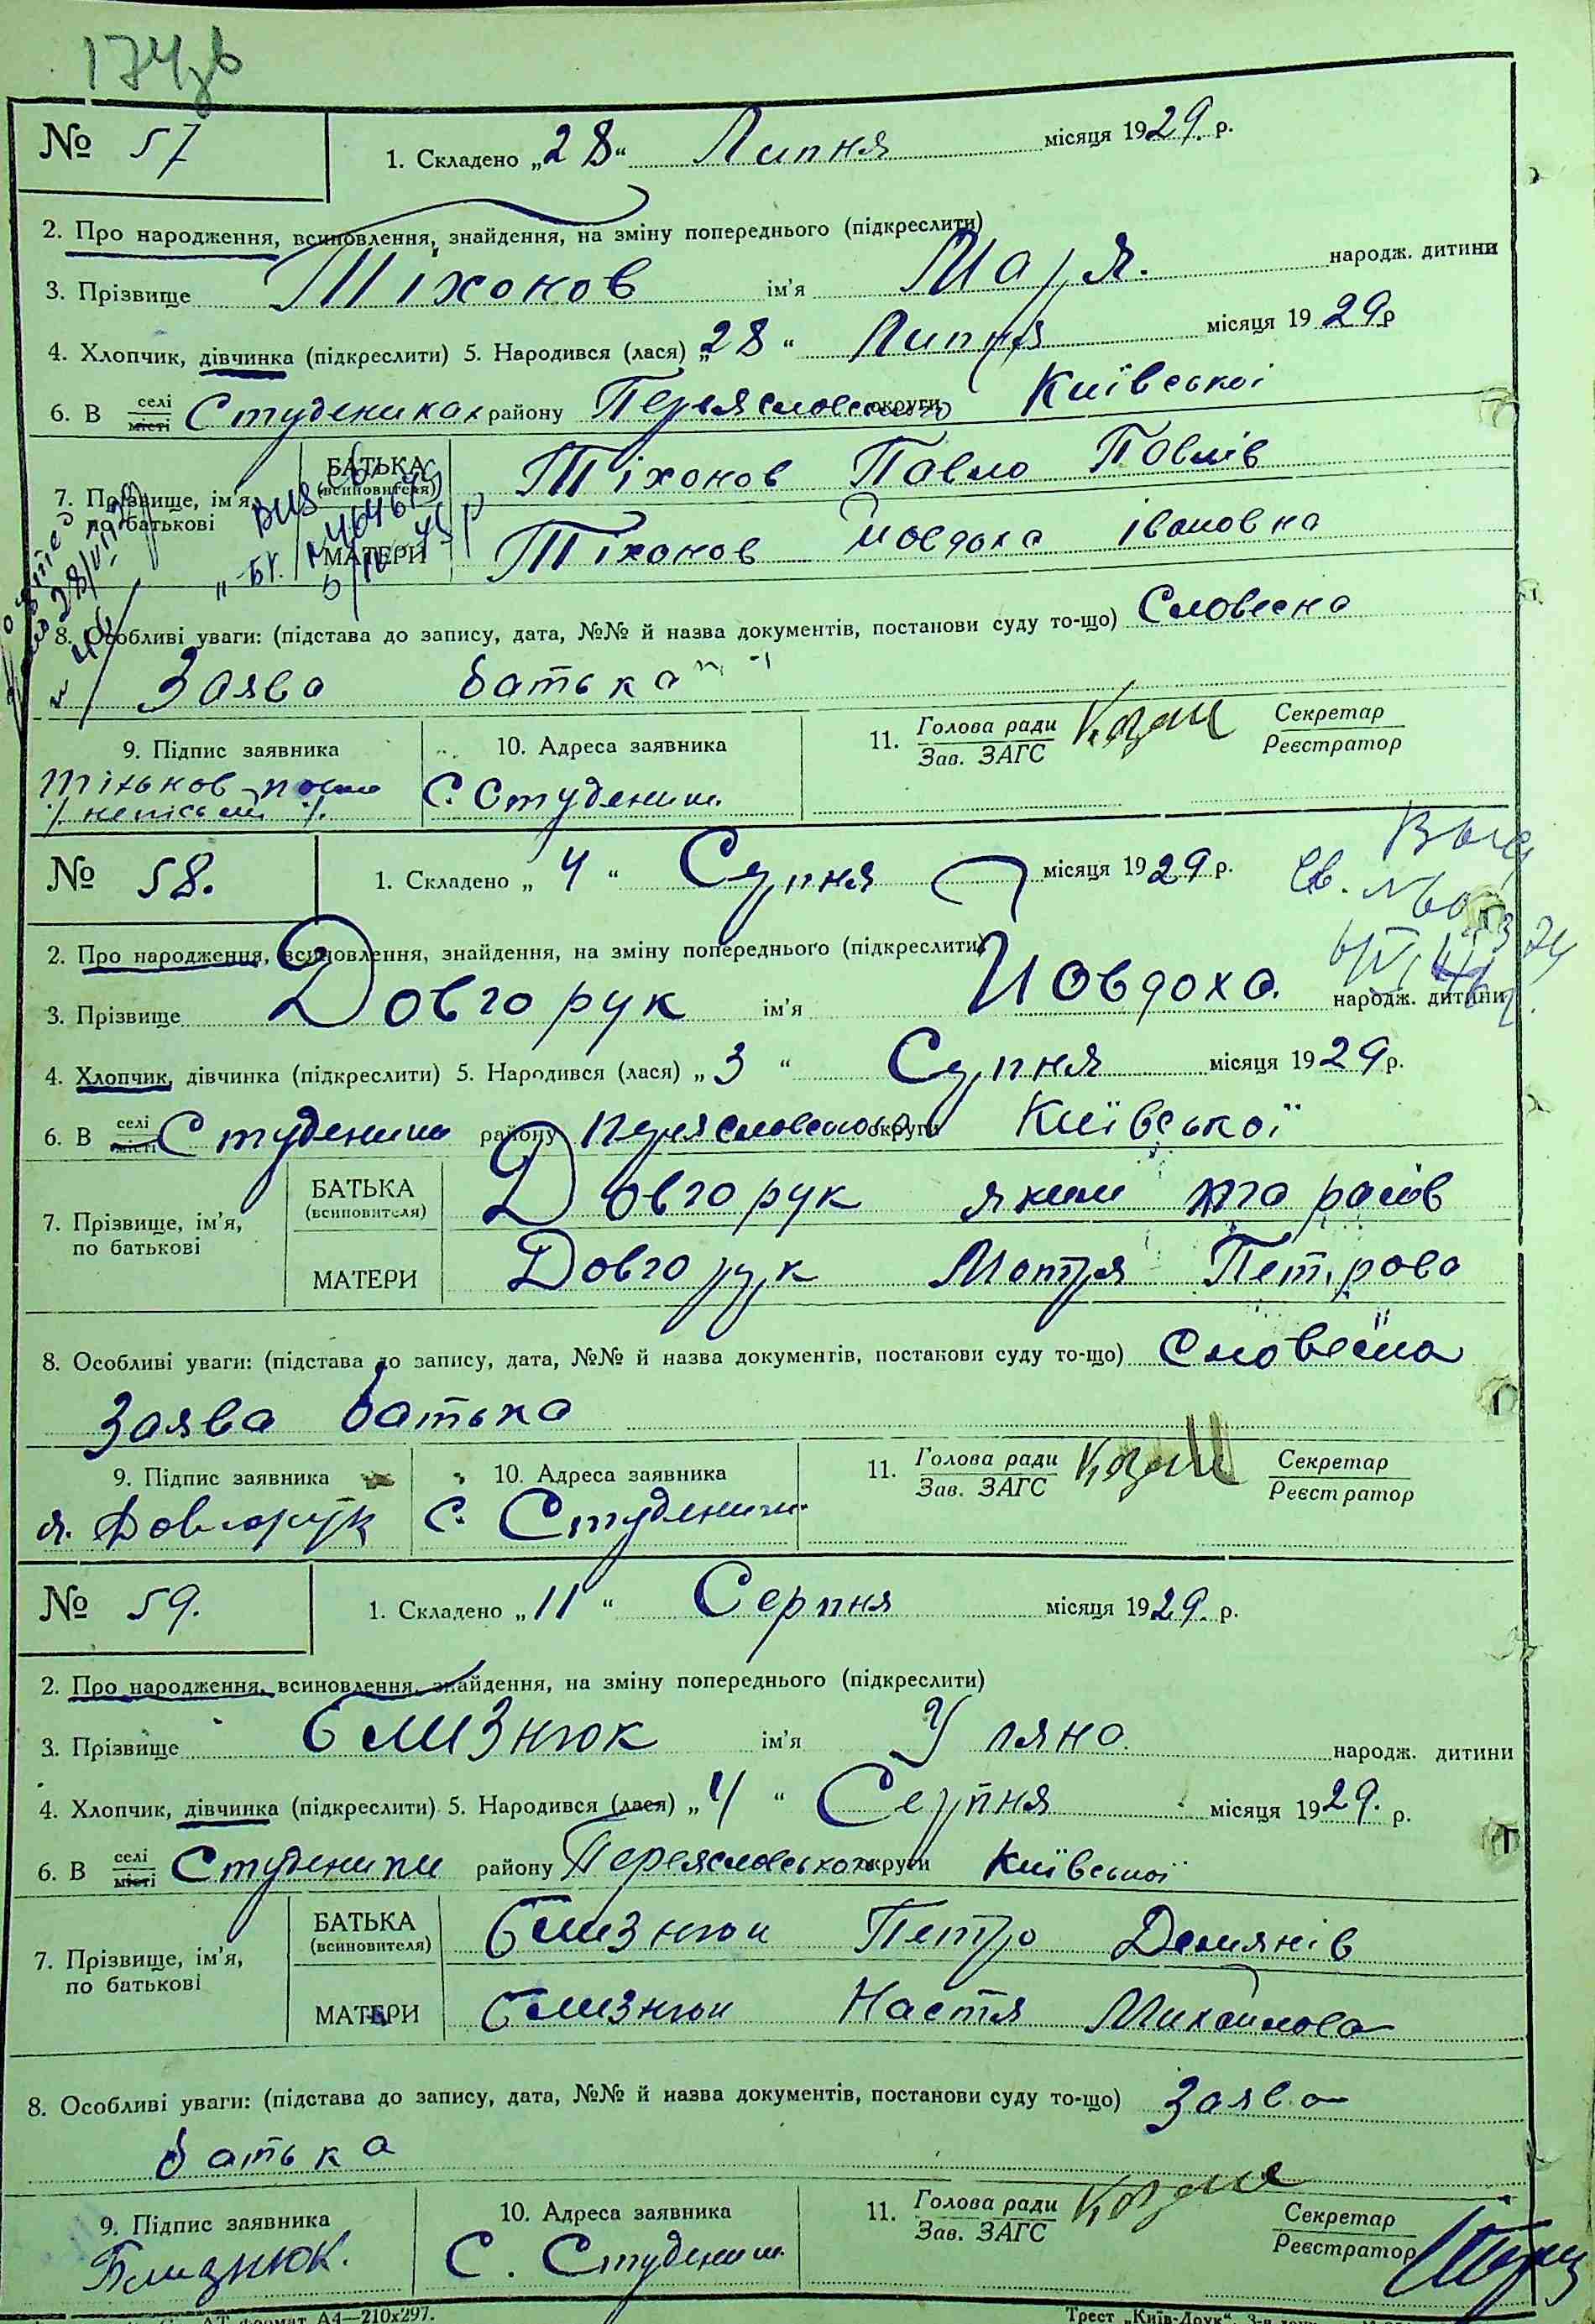 № 57
1. Складено „28“ Липня місяця 1929. р.
2. Про народження, всиновлення, знайдення, на зміну попереднього (підкреслити)
3. Прізвище Тіхонов ім'я Маря. народж. дитини
4. Хлопчик, дівчинка (підкреслити) 5. Народився (лася) „28“ Липня місяця 1929р
6. В селі місті Студениках району Переясловського округи Київської
7. Прізвище, ім'я, по батькові
БАТЬКА (всиновителя) Тіхонов Павло Павлів
МАТЕРИ Тіхонов Иовдоха Івановна
8. Особливі уваги: (підстава до запису, дата, №№ й назва документів, постанови суду то-що) Словесна
Заява батька
9. Підпис заявника 10. Адреса заявника 11. Голова ради Зав. ЗАГС Секретар Реєстратор
Тіхонов С. Студеники
№ 58.
1. Складено „4“ Супня місяця 1929 р.
2. Про народження, всиновлення, знайдення, на зміну попереднього (підкреслити)
3. Прізвище Довгорук ім'я Иовдоха. народж. дитини
4. Хлопчик, дівчинка (підкреслити) 5. Народився (лася) „3“ Супня місяця 1929 р.
6. В селі місті Студеники району Переясловського округи Київської
7. Прізвище, ім'я, по батькові
БАТЬКА (всиновителя) Довгорук Яким
МАТЕРИ Довгорук Мотря Петрова
8. Особливі уваги: (підстава до запису, дата, №№ й назва документів, постанови суду то-що) Словесна
Заява батька
9. Підпис заявника 10. Адреса заявника 11. Голова ради Зав. ЗАГС Секретар Реєстратор
я. Довгорук С. Студеники
№ 59.
1. Складено „11“ Серпня місяця 1929. р.
2. Про народження, всиновлення, знайдення, на зміну попереднього (підкреслити)
3. Прізвище Близнюк ім'я Уляна. народж. дитини
4. Хлопчик, дівчинка (підкреслити) 5. Народився (лася) „4“ Серпня місяця 1929. р.
6. В селі місті Студеники району Переясловського округи Київської
7. Прізвище, ім'я, по батькові
БАТЬКА (всиновителя) Близнюк Петро Демянів
МАТЕРИ Близнюк Настя Михайлова
8. Особливі уваги: (підстава до запису, дата, №№ й назва документів, постанови суду то-що) Заява
батька
9. Підпис заявника 10. Адреса заявника 11. Голова ради Зав. ЗАГС Секретар Реєстратор
Близнюк. С. Студеники
формат А4—210х297. Трест „Київ-Друк“